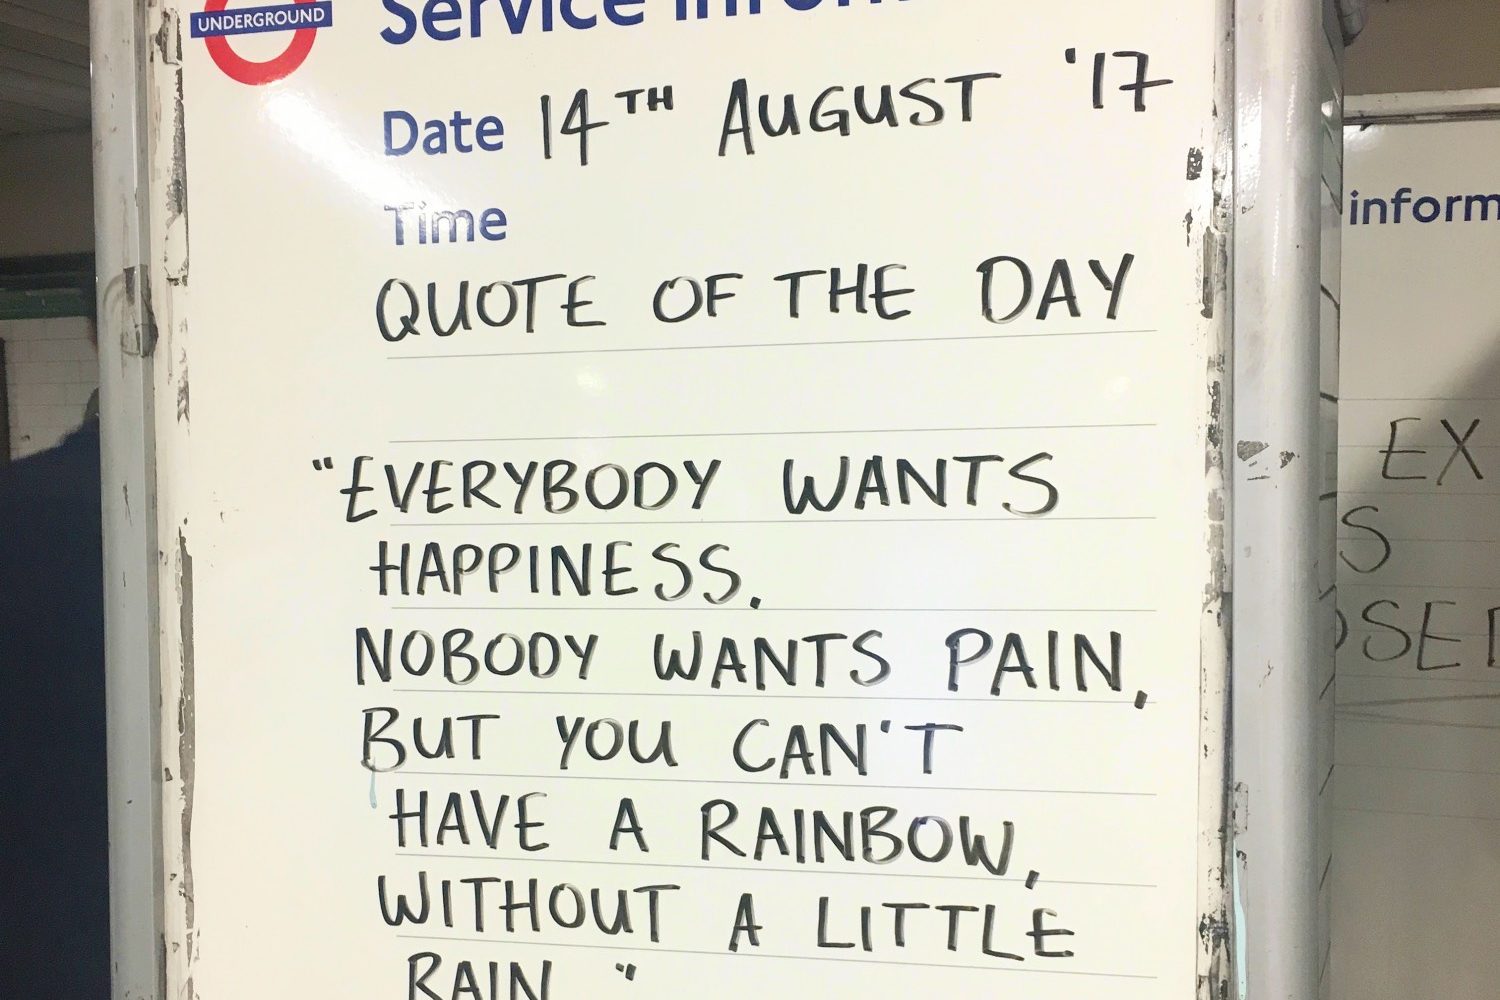 UNDERGROUND
Service
Date 14TH AUGUST '17
Time
QUOTE OF THE DAY
"EVERYBODY WANTS
HAPPINESS.
NOBODY WANTS PAIN,
BUT YOU CAN'T
HAVE A RAINBOW,
WITHOUT A LITTLE
RAIN "
inform
EX
S
OSED